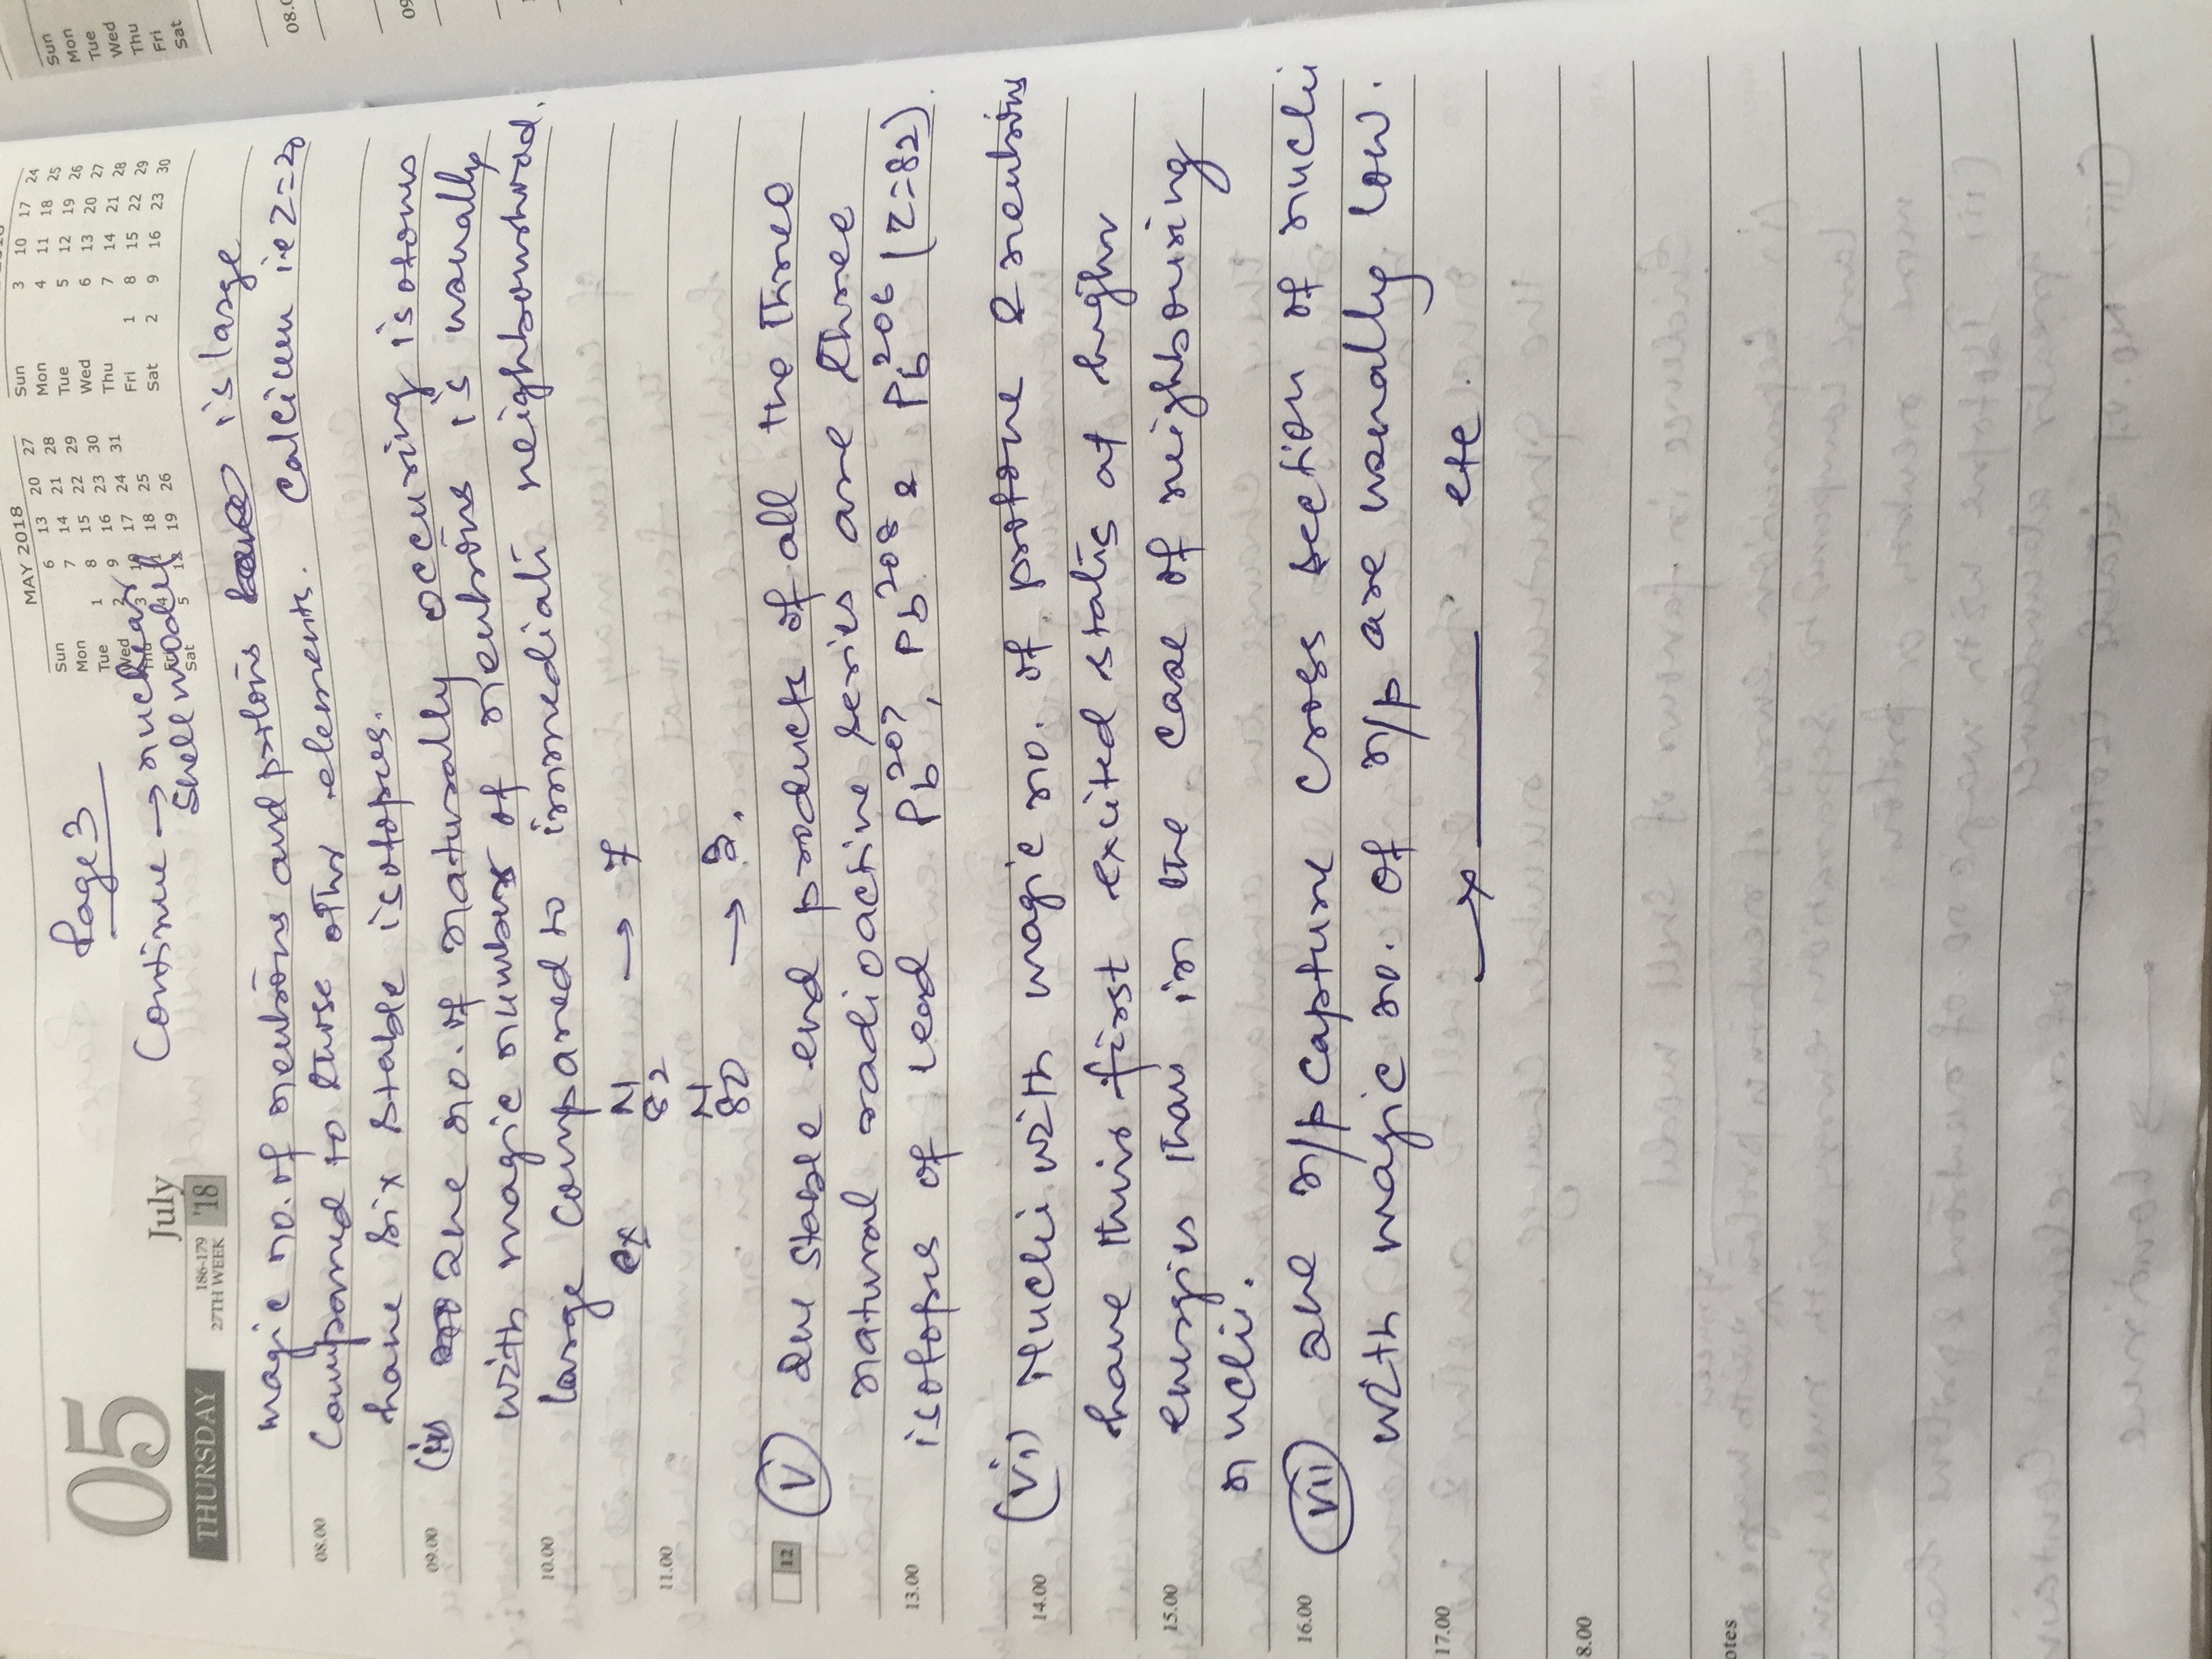 05
July
THURSDAY
186-179
27TH WEEK
'18
Page 3
Continue → nuclear
Shell model
MAY 2018
Sun 6 13 20 27
Mon 7 14 21 28
Tue 1 8 15 22 29
Wed 2 9 16 23 30
Thu 3 10 17 24 31
Fri 4 11 18 25
Sat 5 12 19 26
Sun 3 10 17 24
Mon 4 11 18 25
Tue 5 12 19 26
Wed 6 13 20 27
Thu 7 14 21 28
Fri 1 8 15 22 29
Sat 2 9 16 23 30
Sun
Mon
Tue
Wed
Thu
Fri
Sat
magic no. of neutrons and protons is large
08.00
compared to those other elements. Calcium i.e Z=20
have six stable isotopes.
09.00
(iv) The no. of naturally occuring isotons
with magic number of neutrons is usually
10.00
large compared to immediate neighbourhood.
ex N 82 → 7
11.00
N 80 → 5.
12
(V) The stable end products of all the three
natural radioactive series are three
13.00
isotopes of lead Pb207, Pb208 & Pb206 (Z=82).
(vi) Nuclei with magic no. of protone & neutrons
14.00
have their first excited states at higher
15.00
energies than in the case of neighbouring
nuclei.
16.00
(vii) The n/p capture cross section of nuclei
with magic no. of n/p are usually low.
17.00
x etc
8.00
otes